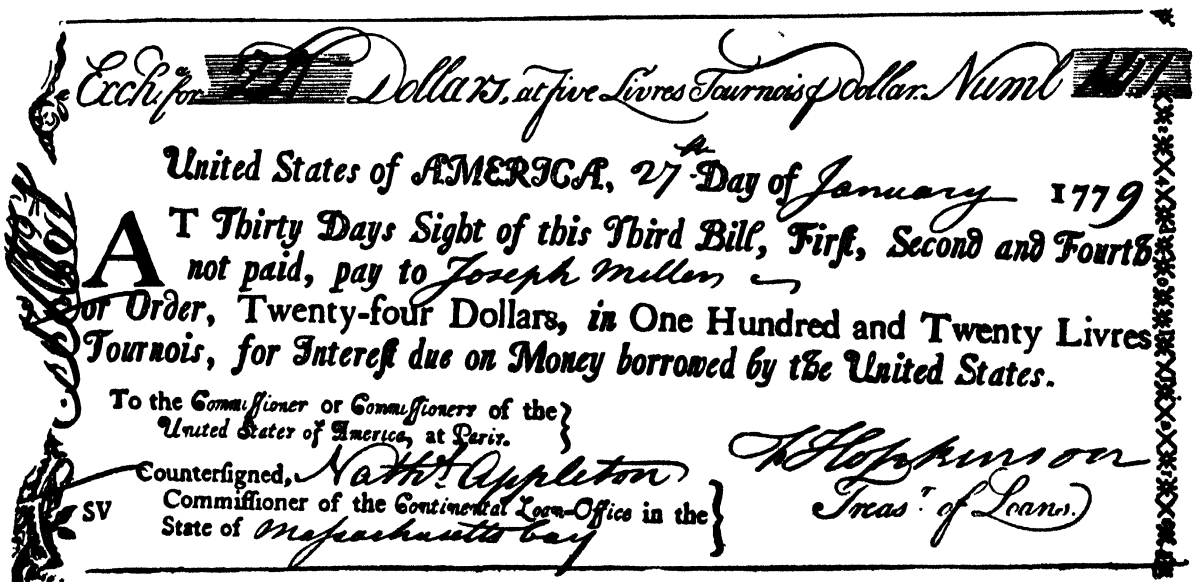 Exch.ᵃ for 24 Dollars, at five Livres Tournois ꝑ Dollar. Numb
United States of AMERICA, 27th Day of January 1779
AT Thirty Days Sight of this Third Bill, First, Second and Fourth
not paid, pay to Joseph Miller
or Order, Twenty-four Dollars, in One Hundred and Twenty Livres
Tournois, for Interest due on Money borrowed by the United States.
To the Commissioner or Commissioners of the
United States of America, at Paris.
Countersigned, Nathl. Appleton
Commissioner of the Continental Loan-Office in the
State of Massachusetts bay
SV
F Hopkinson
Treasr. of Loans.